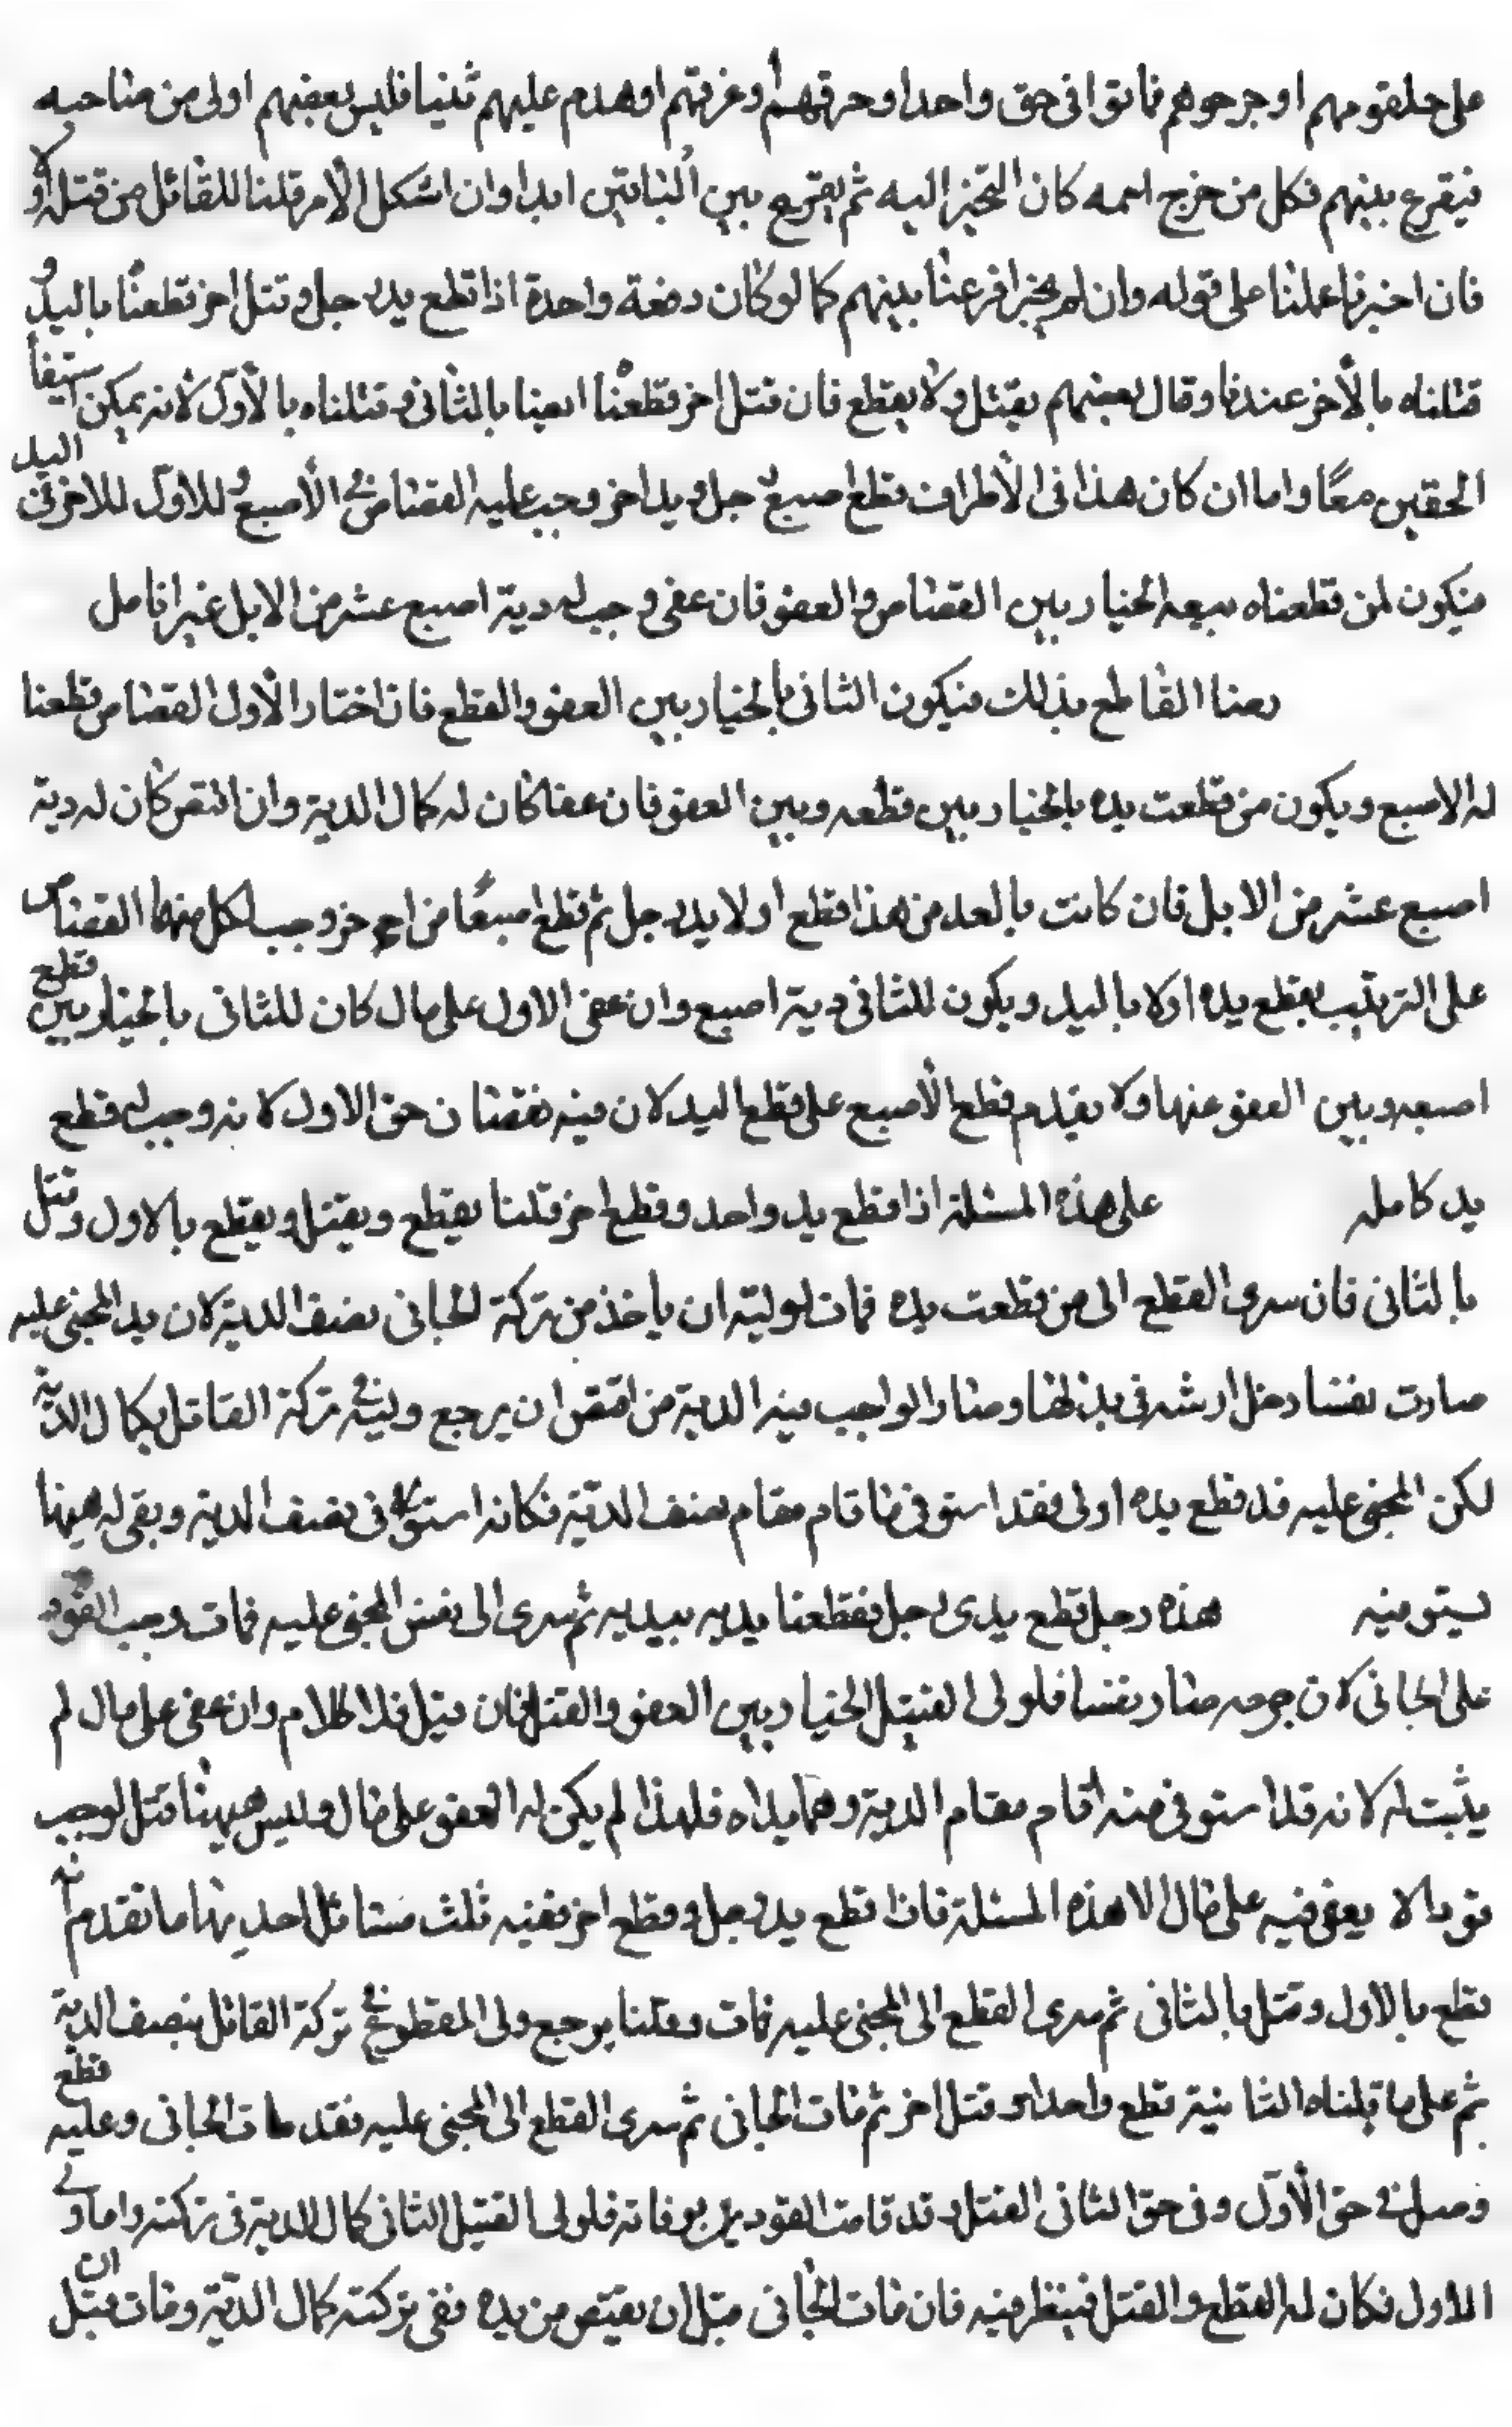 على حلقومهم او جرحوهم فماتوا فى حق واحد او حرقهم او غرقهم او هدم عليهم شيئا فليس بعضهم اولى من صاحبه
فيقرع بينهم فكل من خرج اسمه كان التخير اليه ثم يقرع بين الباقين ابدا وان اشكل الامر قلنا للقاتل من قتله اولا
فان اخبرنا عملنا على قوله وان لم يخبر اقرعنا بينهم كما لو كان دفعة واحدة اذا قطع يد رجل وقتل اخر قطعنا باليد و
قتلناه بالأخر عندنا وقال بعضهم يقتل ولا يقطع فان قتل اخر وقطعنا ايضا بالثانى وقتلناه بالأول لانه يمكن استيفا
الحقين معًا واما ان كان هذا فى الأطراف فقطع اصبع رجل ويد اخر وجب عليه القصاص فى الأصبع للاول وللاخر فى اليد
فيكون لمن قطعناه بيعه الخيار بين القصاص والعفو فان عفى وجب له دية اصبع عشر من الابل غير انا مل
رضا القاطع بذلك فيكون الثانى بالخيار بين العفو والقطع فان اختار الأول القصاص قطعنا
له الاصبع ويكون من قطعت يده بالخيار بين قطعه وبين العفو فان عفا كان له كمال الدية وان اقتص كان له دية
اصبع عشر من الابل فان كانت بالعد من هذا فقطع اولا يد رجل ثم قطع اصبعًا من اخر وجب لكل منهما القصاص
على الترتيب يقطع يده اولا باليد ويكون للثانى دية اصبع وان عفى الاول على مال كان للثانى بالخيار بين قطع
اصبعه وبين العفو عنها ولا يقدم قطع الأصبع على قطع اليد لان فيه نقصان حق الاول لانه وجب له قطع
يد كامله على هذه المسئلة اذا قطع يد واحد وقطع اخر قلنا يقطع ويقتل ويقطع بالاول وقتل
بالثانى فان سرى القطع الى من قطعت يده فمات لوليه ان ياخذ من تركة الجانى نصف الدية لان يد المجنى عليه
صارت نفسا دخل ارشه فى بدلها وصار الواجب فيه الدية من اقتص ان يرجع وليه فى تركة القاتل بكمال الدية
لكن المجنى عليه قد قطع يده اولى فقد استوفى ما قام مقام نصف الدية فكانه استوفى نصف الدية وبقى له هيهنا
يستوفيه هذه رجل قطع يدى رجل فقطعنا يديه بيديه ثم سرى الى نفس المجنى عليه فمات وجب القود
على الجانى لان جرحه صار نفسا فلولى القتيل الخيار بين العفو والقتل فان قتل فلا كلام وان عفى على مال لم
يثبت له لانه قد استوفى منه اقام مقام الدية وهما يداه فلهذا لم يكن له العفو على مال وليس هيهنا قتل لوجب
قودا لا يعفى فيه على مال الا هذه المسئلة فاذا قطع يد رجل وقطع اخر ففيه ثلث مسائل احديها ما تقدم انه
قطع بالاول وقتل بالثانى ثم سرى القطع الى المجنى عليه فمات وقلنا يرجع ولى المقطوع فى تركة القاتل بنصف الدية
ثم على ما قلناه الثانية قطع واحدا وقتل اخر ثم مات الجانى ثم سرى القطع الى المجنى عليه فقد مات الجانى وعليه قطع
وصل فى حق الأول وفى حق الثانى القتل وقد فات القود بوفاته فلولى القتيل الثانى كمال الدية فى تركته واما ولى
الاول فكان له القطع والقتل فينظر فيه فان مات الجانى قبل ان يقتص من يده ففى تركته كمال الدية ومات قبل ان